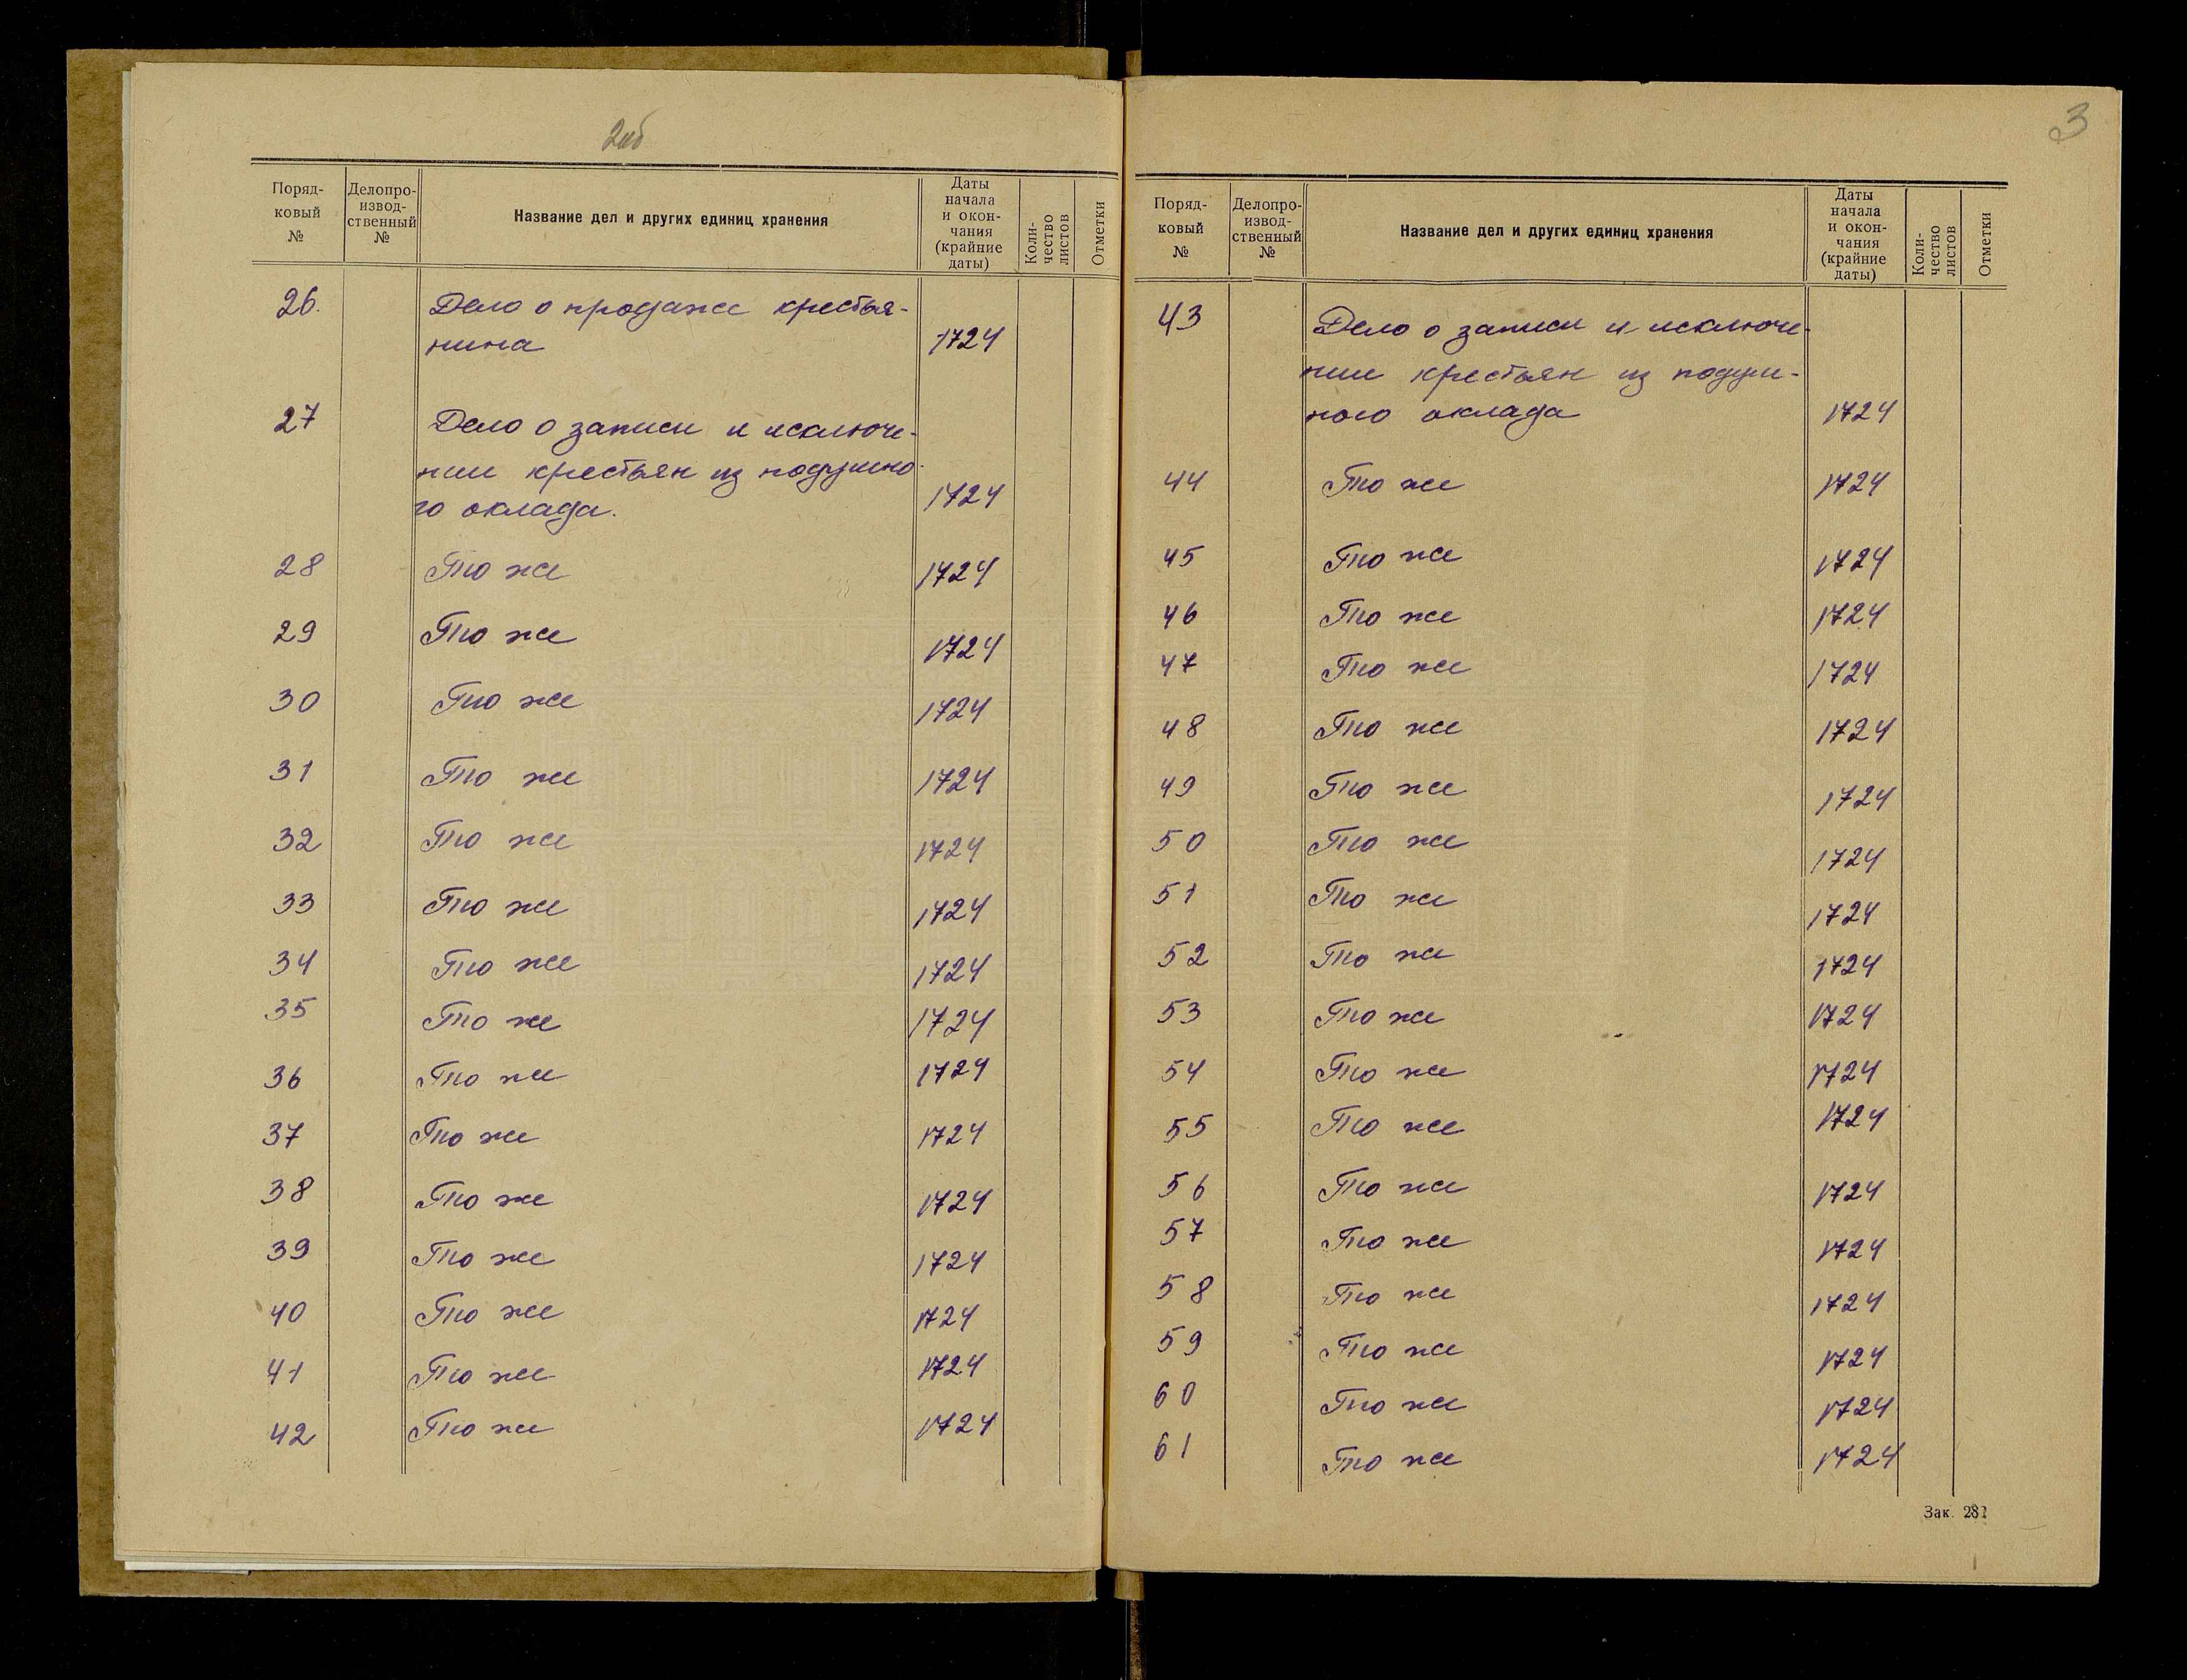 2об
Поряд-
ковый
№
Делопро-
извод-
ственный
№
Название дел и других единиц хранения
Даты
начала
и окон-
чания
(крайние
даты)
Коли-
чество
листов
Отметки
26. Дело о продаже крестья-
нина 1724
27 Дело о записи и исключе-
нии крестьян из подушно-
го оклада. 1724
28 То же 1724
29 То же 1724
30 То же 1724
31 То же 1724
32 То же 1724
33 То же 1724
34 То же 1724
35 То же 1724
36 То же 1724
37 То же 1724
38 То же 1724
39 То же 1724
40 То же 1724
41 То же 1724
42 То же 1724
3
Поряд-
ковый
№
Делопро-
извод-
ственный
№
Название дел и других единиц хранения
Даты
начала
и окон-
чания
(крайние
даты)
Коли-
чество
листов
Отметки
43 Дело о записи и исключе-
нии крестьян из подуш-
ного оклада 1724
44 То же 1724
45 То же 1724
46 То же 1724
47 То же 1724
48 То же 1724
49 То же 1724
50 То же 1724
51 То же 1724
52 То же 1724
53 То же 1724
54 То же 1724
55 То же 1724
56 То же 1724
57 То же 1724
58 То же 1724
59 То же 1724
60 То же 1724
61 То же 1724
Зак.